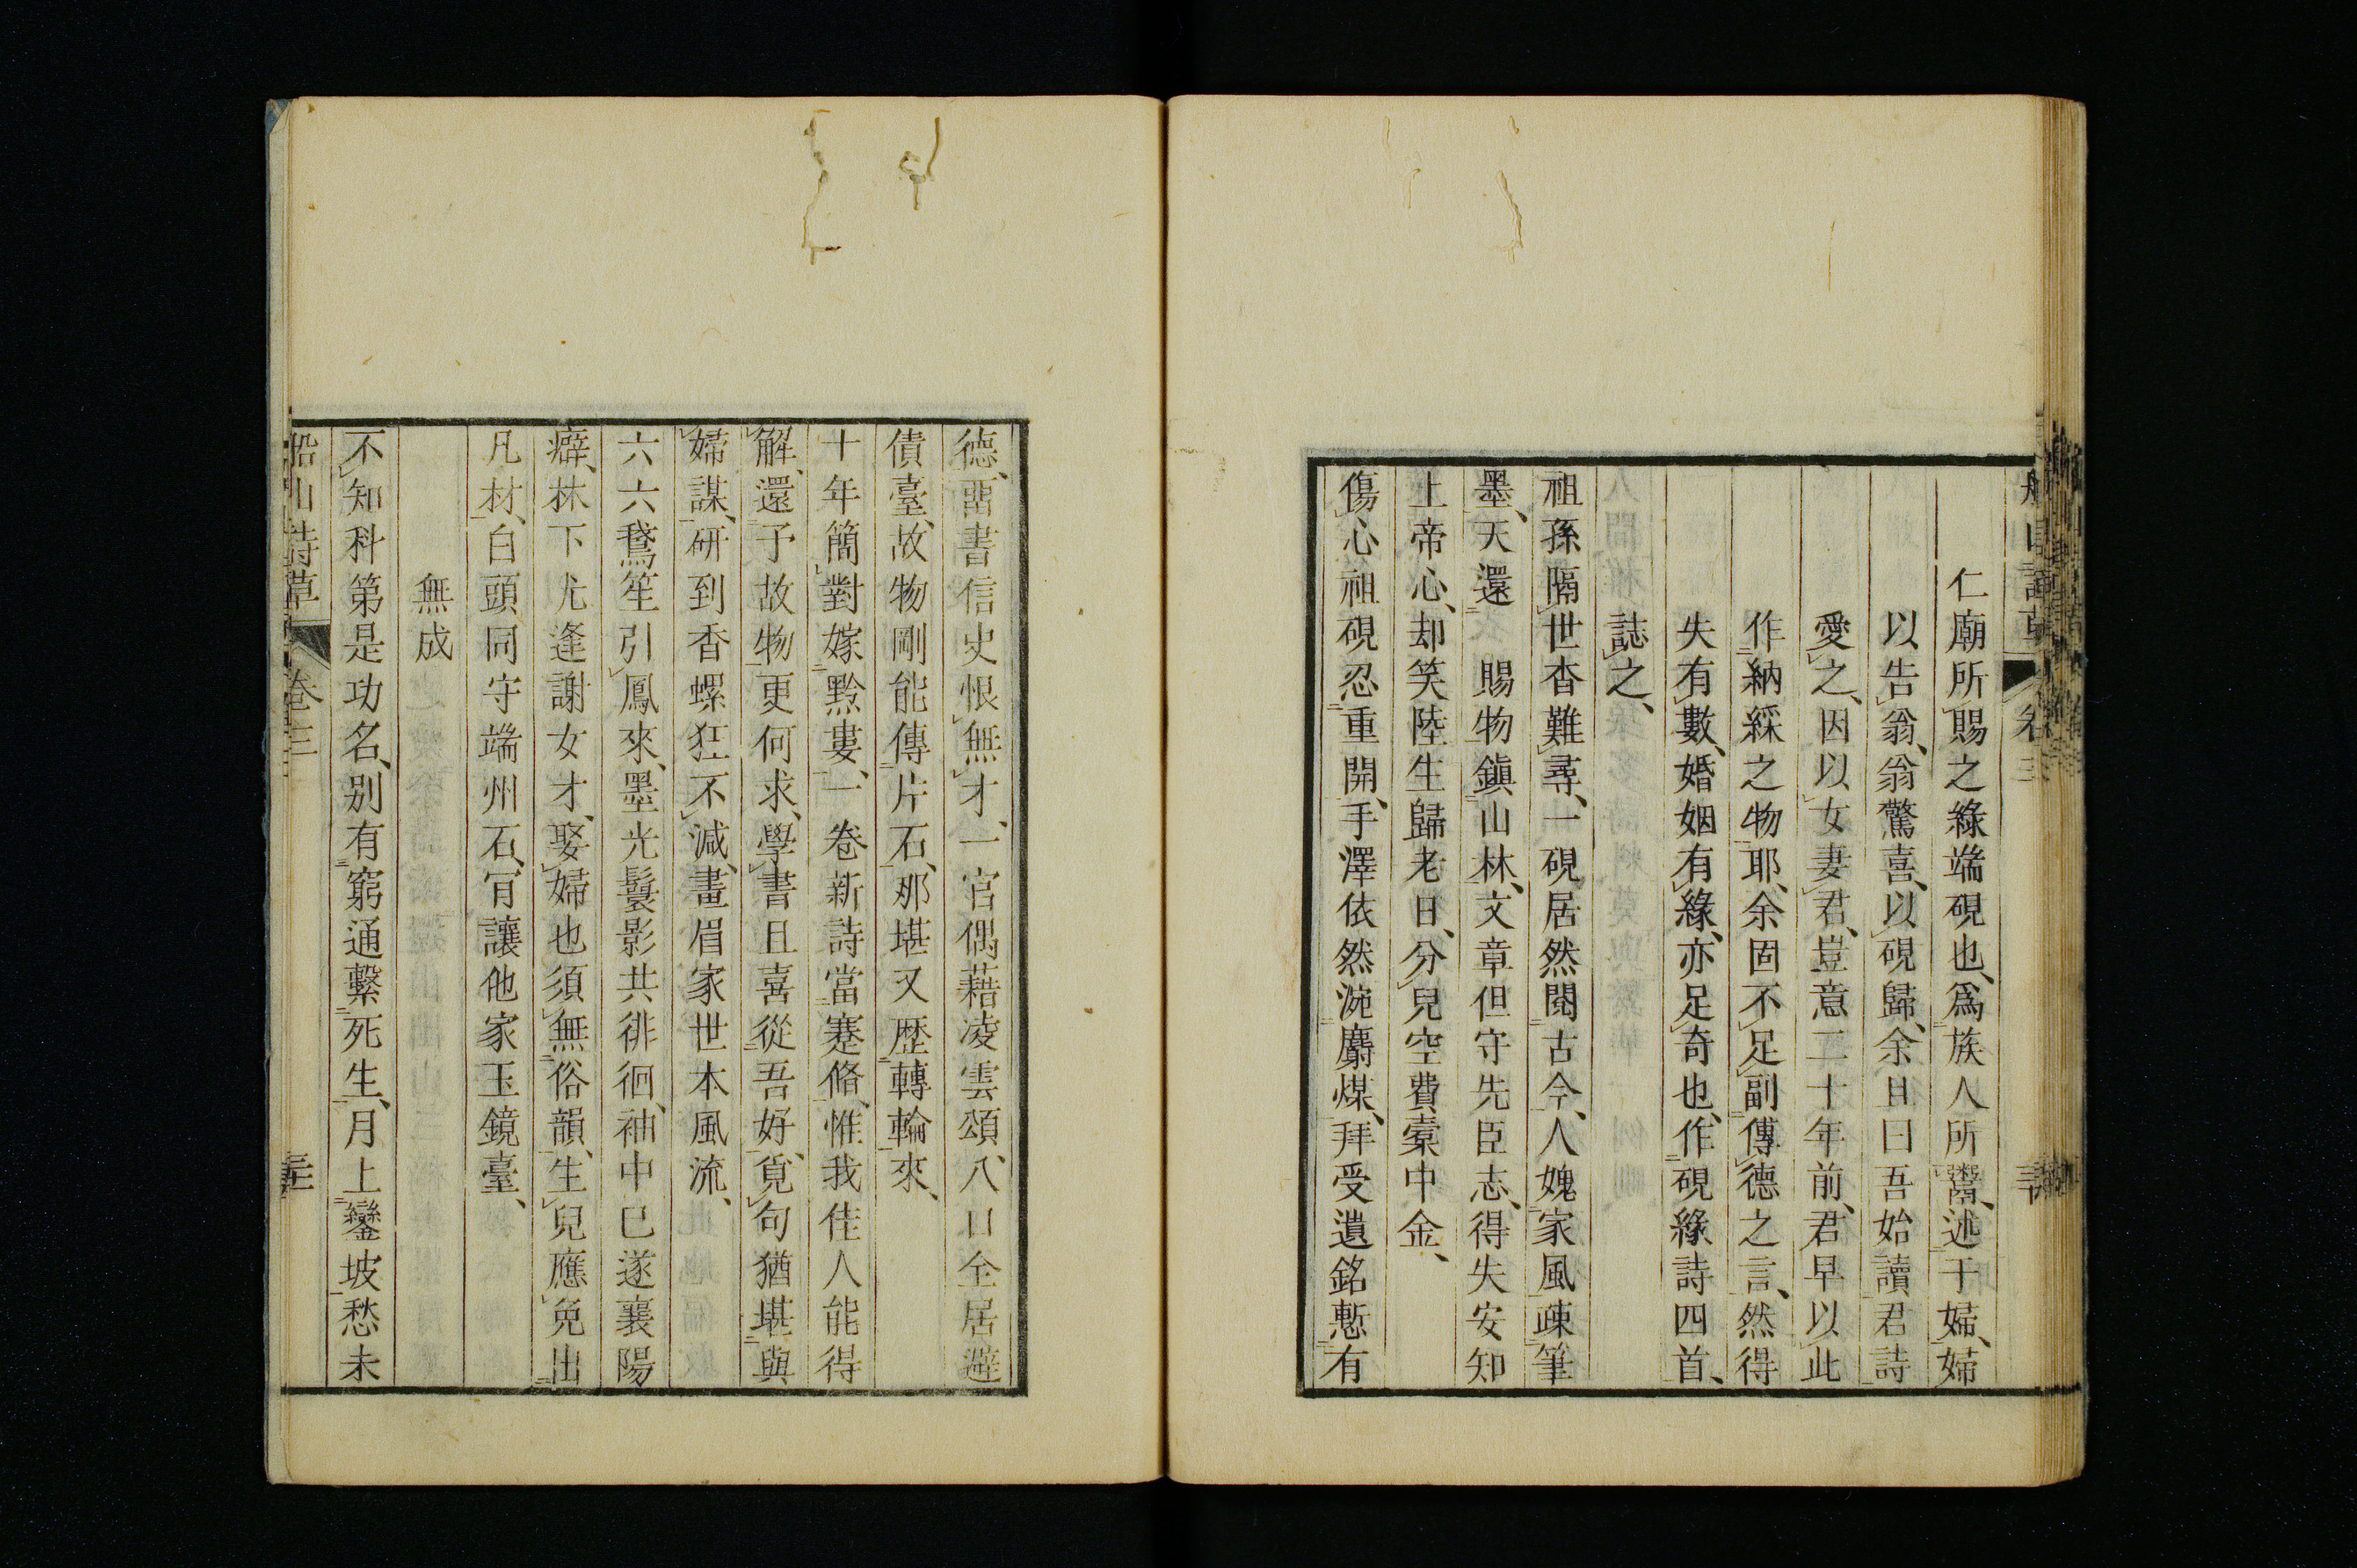 仁廟所賜之綠端硯也、爲族人所鬻、述于婦、婦
以告翁、翁驚喜、以硯歸、余且曰吾始讀君詩
愛之、因以女妻君、豈意二十年前、君早以此
作納綵之物耶、余固不足副傳德之言、然得
失有數、婚姻有緣、亦足奇也、作硯緣詩四首、
誌之、
祖孫隔世杳難尋、一硯居然閱古今、人媿家風疎筆
墨、天還 賜物鎭山林、文章但守先臣志、得失安知
上帝心、却笑陸生歸老日、分兒空費橐中金、
傷心祖硯忍重開、手澤依然涴麝煤、拜受遺銘慙有
德、晋書信史恨無才、一官偶藉凌雲頌、八口全居避
債臺、故物剛能傳片石、那堪又歷轉輪來、
十年簡對嫁黔婁、一卷新詩當蹇脩、惟我佳人能得
解、還予故物更何求、學書且喜從吾好、覓句猶堪與
婦謀、研到香螺狂不減、畫眉家世本風流、
六六鵞笙引鳳來、墨光鬟影共徘徊、袖中已遂襄陽
癖、林下尤逢謝女才、娶婦也須無俗韻、生兒應免出
凡材、白頭同守端州石、肯讓他家玉鏡臺、
無成
不知科第是功名、別有窮通繫死生、月上鑾坡愁未
船山詩草 卷三